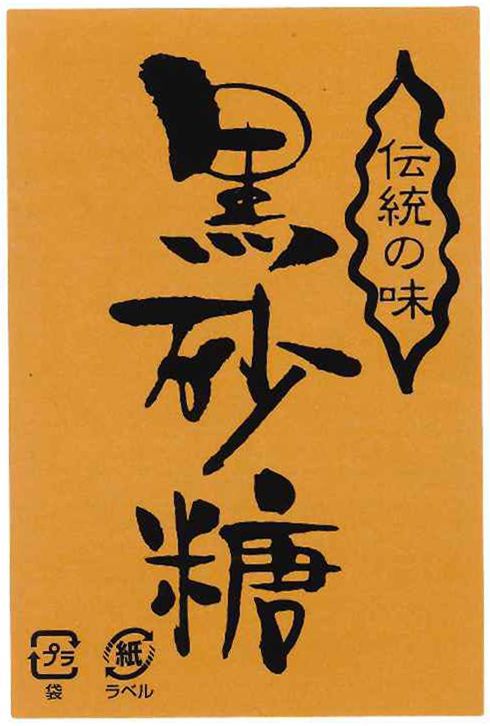 伝統の味
黒砂糖
プラ
袋
紙
ラベル